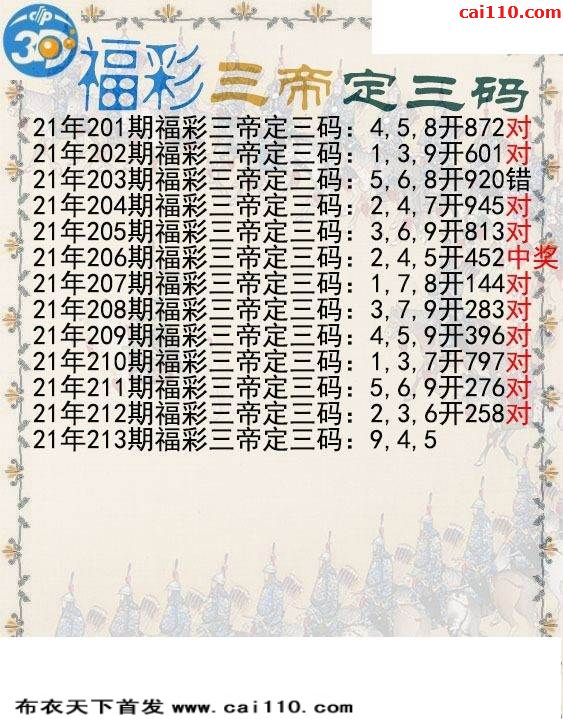 cai110.com
3D
福彩三帝定三码
21年201期福彩三帝定三码：4,5,8开872对
21年202期福彩三帝定三码：1,3,9开601对
21年203期福彩三帝定三码：5,6,8开920错
21年204期福彩三帝定三码：2,4,7开945对
21年205期福彩三帝定三码：3,6,9开813对
21年206期福彩三帝定三码：2,4,5开452中奖
21年207期福彩三帝定三码：1,7,8开144对
21年208期福彩三帝定三码：3,7,9开283对
21年209期福彩三帝定三码：4,5,9开396对
21年210期福彩三帝定三码：1,3,7开797对
21年211期福彩三帝定三码：5,6,9开276对
21年212期福彩三帝定三码：2,3,6开258对
21年213期福彩三帝定三码：9,4,5
布衣天下首发 www.cai110.com